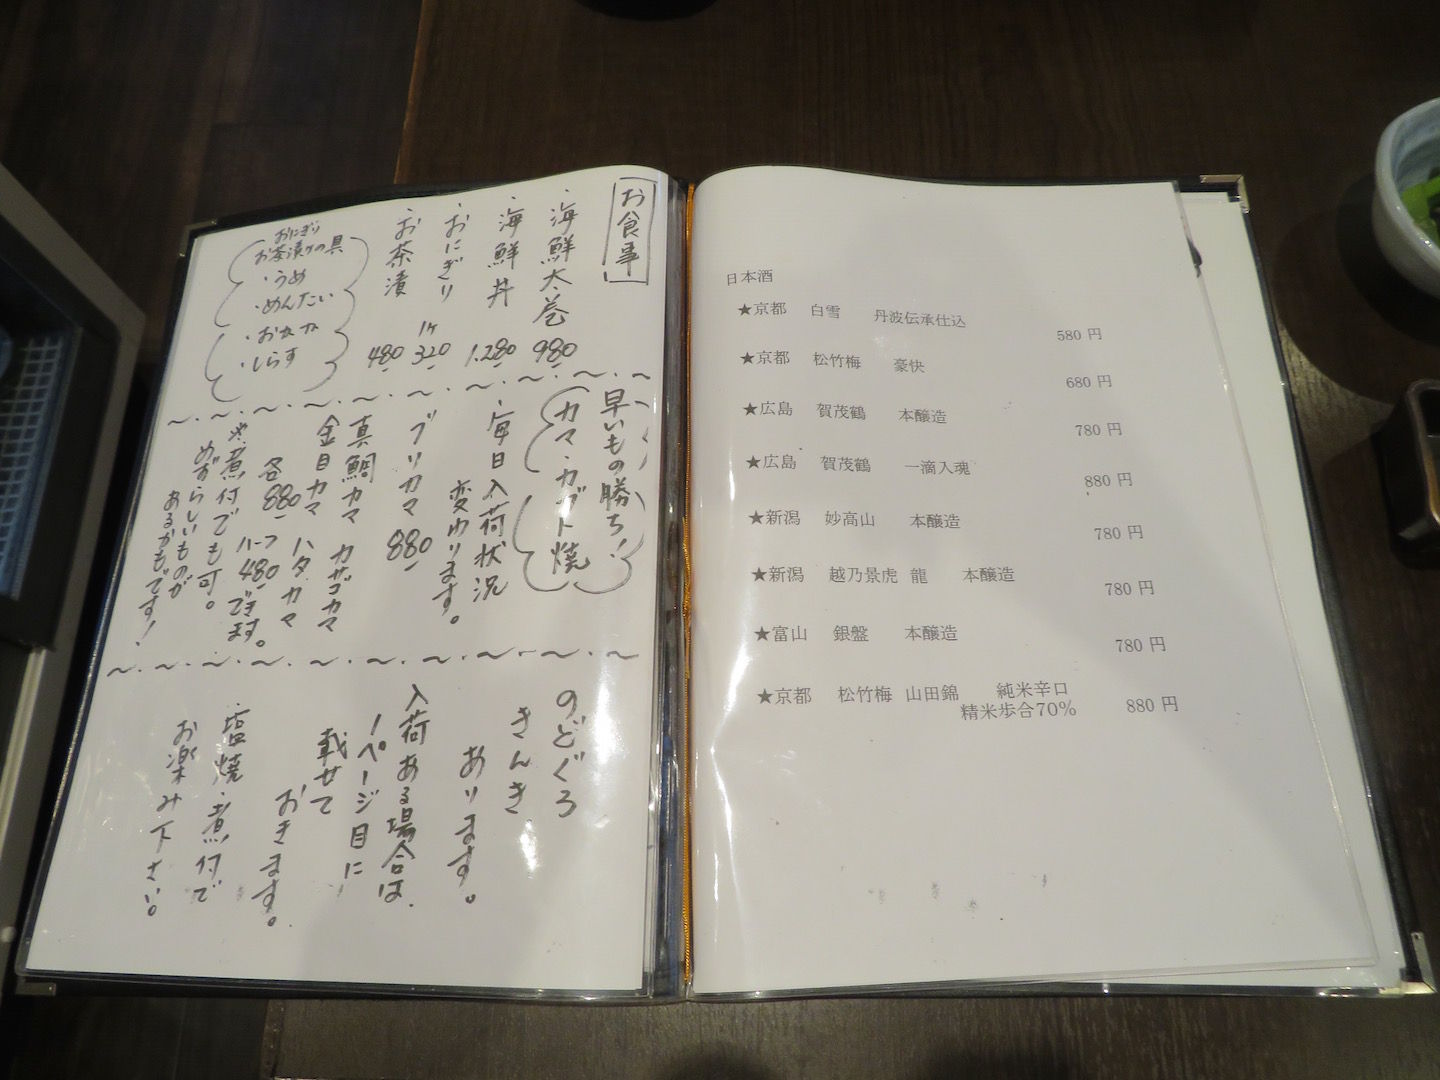 お食事
・海鮮太巻 980-
・海鮮丼 1.280-
・おにぎり 1ヶ 320-
・お茶漬 480-
おにぎり
お茶漬けの具
・うめ
・めんたい
・おかか
・しらす
早いもの勝ち!
カマ・カブト焼
・毎日入荷状況
変わります。
ブリカマ 880-
真鯛カマ カサゴカマ
金目カマ ハタカマ
各880- ハーフ480-できます。
※煮付でも可。
めずらしいものが
あるかもです!
のどぐろ
きんき
あります。
入荷ある場合は、
1ページ目に
載せて
おきます。
・塩焼・煮付で
お楽み下さい。
日本酒
★京都 白雪 丹波伝承仕込 580 円
★京都 松竹梅 豪快 680 円
★広島 賀茂鶴 本醸造 780 円
★広島 賀茂鶴 一滴入魂 880 円
★新潟 妙高山 本醸造 780 円
★新潟 越乃景虎 龍 本醸造 780 円
★富山 銀盤 本醸造 780 円
★京都 松竹梅 山田錦 純米辛口
精米歩合70% 880 円